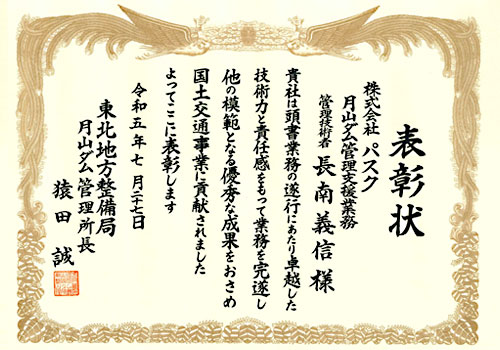 表彰状
株式会社 パスク
月山ダム管理支援業務
管理技術者 長南義信 様
貴社は頭書業務の遂行にあたり卓越した
技術力と責任感をもって業務を完遂し
他の模範となる優秀な成果をおさめ
国土交通事業に貢献されました
よってここに表彰します
令和五年七月二十七日
東北地方整備局
月山ダム管理所長
猿田 誠